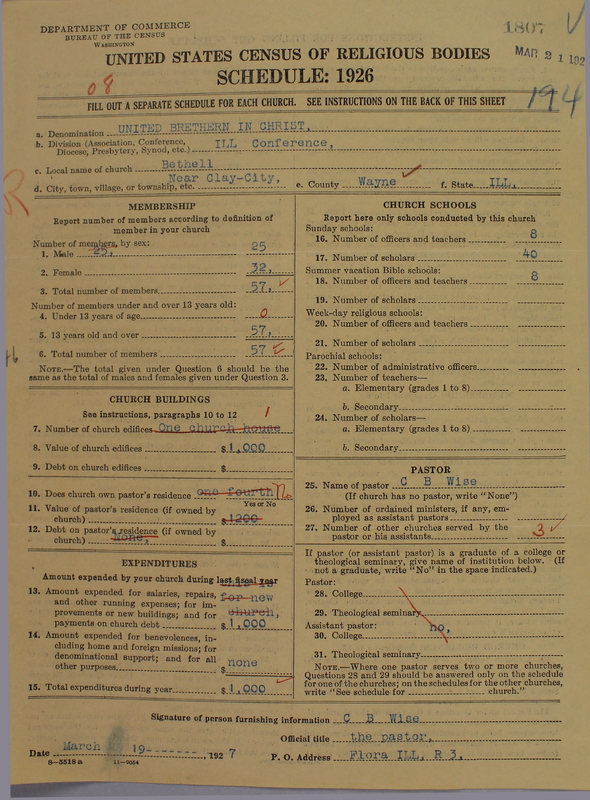 DEPARTMENT OF COMMERCE
BUREAU OF THE CENSUS
WASHINGTON
1807
MAR 21 192
UNITED STATES CENSUS OF RELIGIOUS BODIES
SCHEDULE: 1926
08
194
FILL OUT A SEPARATE SCHEDULE FOR EACH CHURCH. SEE INSTRUCTIONS ON THE BACK OF THIS SHEET
a. Denomination UNITED BRETHERN IN CHRIST,
b. Division (Association, Conference, Diocese, Presbytery, Synod, etc.) ILL Conference,
c. Local name of church Bethell
d. City, town, village, or township, etc. Near Clay-City, e. County Wayne f. State ILL,
R
MEMBERSHIP
Report number of members according to definition of
member in your church
Number of members, by sex:
1. Male 25, 25
2. Female 32,
3. Total number of members 57,
Number of members under and over 13 years old:
4. Under 13 years of age 0
5. 13 years old and over 57,
6. Total number of members 57
NOTE.—The total given under Question 6 should be
same as the total of males and females given under Question 3.
CHURCH BUILDINGS
See instructions, paragraphs 10 to 12
1
7. Number of church edifices One church house
8. Value of church edifices $1,000
9. Debt on church edifices $
10. Does church own pastor's residence one fourth No
Yes or No
11. Value of pastor's residence (if owned by
church) $1200
12. Debt on pastor's residence (if owned by
church) None, $
EXPENDITURES
Amount expended by your church during last fiscal year
this is
13. Amount expended for salaries, repairs, for new
and other running expenses; for im-
provements or new buildings; and for church,
payments on church debt $1,000
14. Amount expended for benevolences, in-
cluding home and foreign missions; for
denominational support; and for all
other purposes $ none
15. Total expenditures during year $1,000
CHURCH SCHOOLS
Report here only schools conducted by this church
Sunday schools:
16. Number of officers and teachers 8
17. Number of scholars 40
Summer vacation Bible schools:
18. Number of officers and teachers 8
19. Number of scholars
Week-day religious schools:
20. Number of officers and teachers
21. Number of scholars
Parochial schools:
22. Number of administrative officers
23. Number of teachers—
a. Elementary (grades 1 to 8)
b. Secondary
24. Number of scholars—
a. Elementary (grades 1 to 8)
b. Secondary
PASTOR
25. Name of pastor C B Wise
(If church has no pastor, write "None")
26. Number of ordained ministers, if any, em-
ployed as assistant pastors
27. Number of other churches served by the
pastor or his assistants 3
If pastor (or assistant pastor) is a graduate of a college or
theological seminary, give name of institution below. (If
not a graduate, write "No" in the space indicated.)
Pastor:
28. College
29. Theological seminary
Assistant pastor: no,
30. College
31. Theological seminary
NOTE.—Where one pastor serves two or more churches,
Questions 28 and 29 should be answered only on the schedule
for one of the churches; on the schedules for the other churches,
write "See schedule for church."
Signature of person furnishing information C B Wise
Official title the pastor,
Date March 19-------, 1927 P. O. Address Flora ILL, R 3,
8—5518a 11—9554